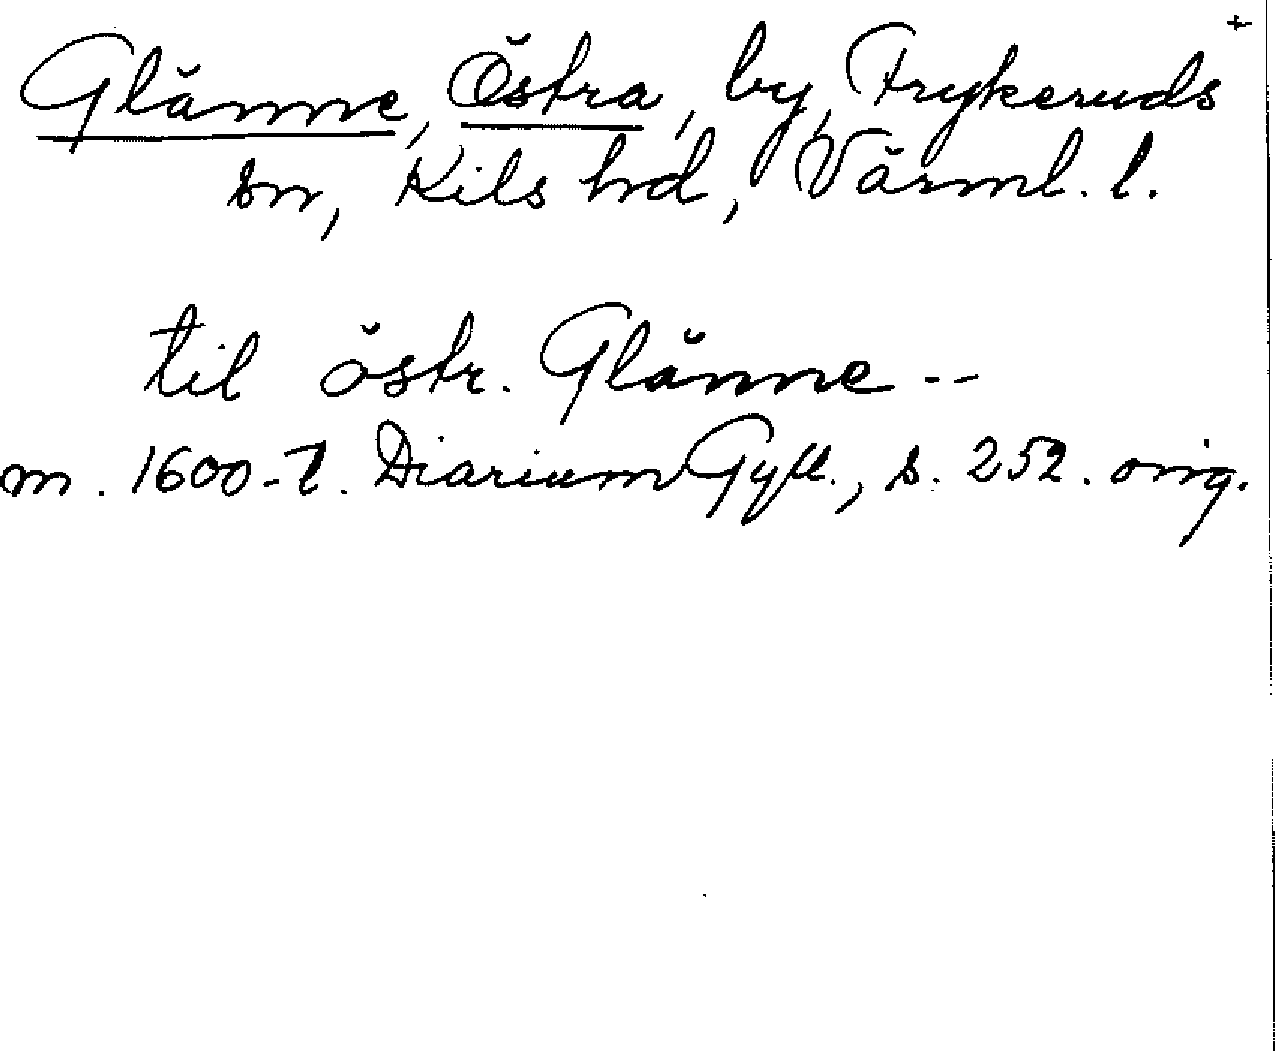 Glänne, Östra, by, Frykeruds +
sn, Kils hd, Värml. l.
til östr. Glänne --
m. 1600-t. Diarium Gyll., s. 252. orig.